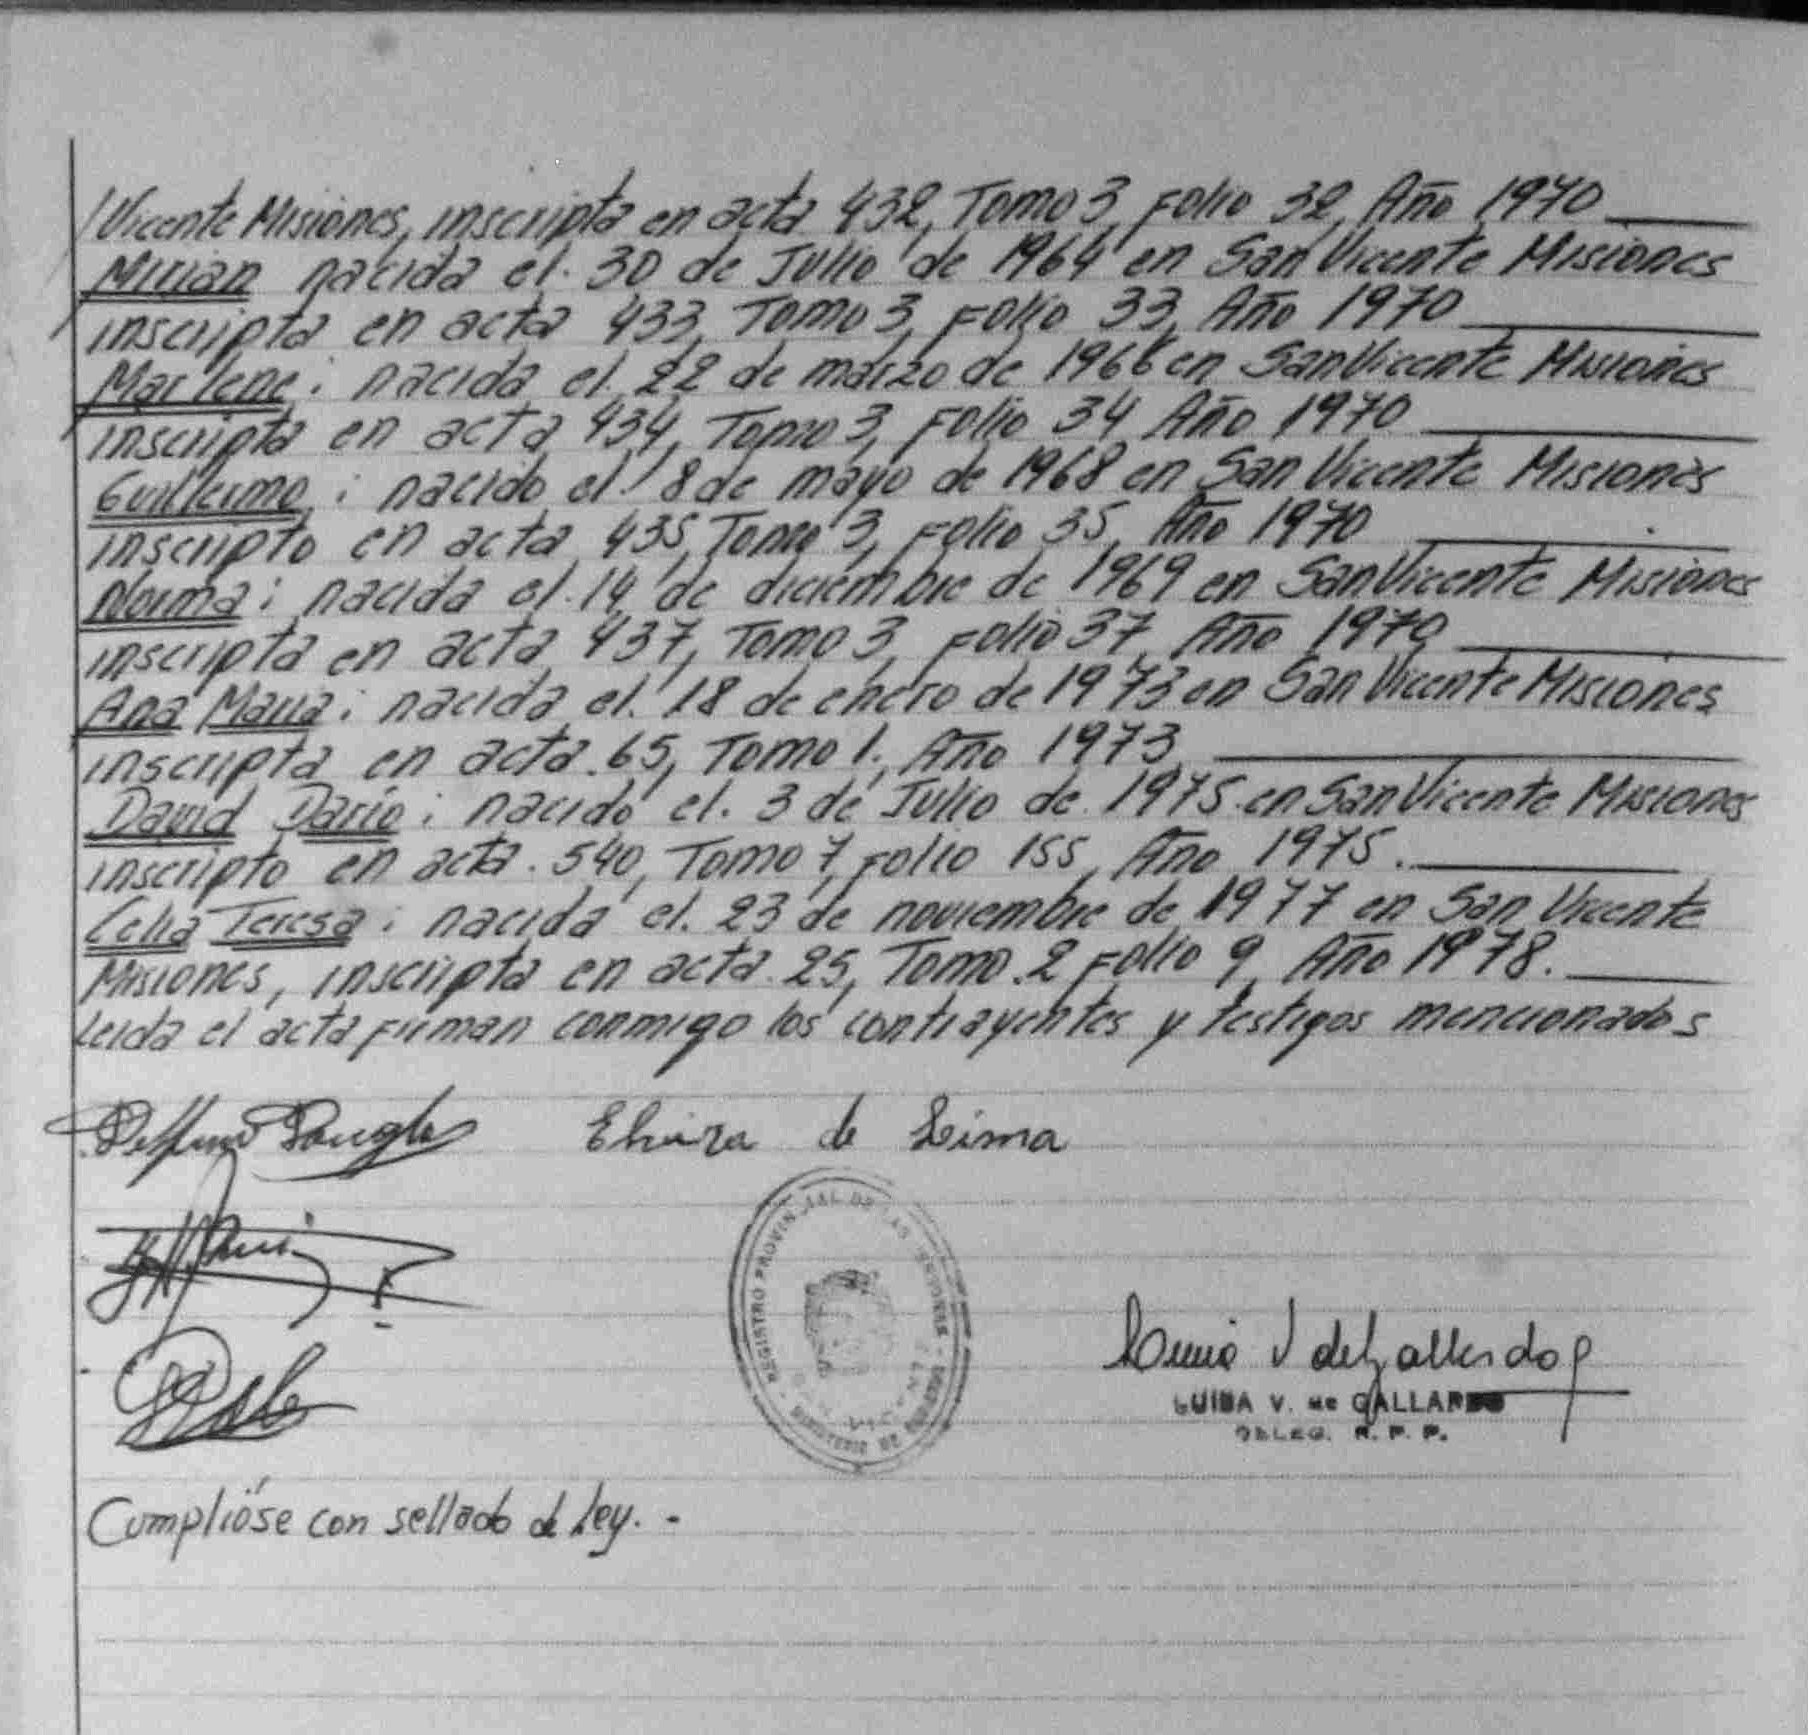 /Vicente Misiones, inscripta en acta 432, Tomo 3, Folio 32, Año 1970
Mirian nacida el. 30 de Julio de 1964 en San Vicente Misiones
inscripta en acta 433, Tomo 3, Folio 33, Año 1970
Marlene: nacida el. 22 de marzo de 1966 en San Vicente Misiones
inscripta en acta 434, Tomo 3, Folio 34 Año 1970
Guillermo: nacido el 8 de mayo de 1968 en San Vicente Misiones
inscripto en acta 435, Tomo 3, Folio 35, Año 1970
Norma: nacida el. 14 de diciembre de 1969 en San Vicente Misiones
inscripta en acta 437, Tomo 3, Folio 37, Año 1970
Ana Maria: nacida el. 18 de enero de 1973 en San Vicente Misiones
inscripta en acta. 65, Tomo 1., Año 1973
David Dario: nacido el. 3 de Julio de 1975 en San Vicente Misiones
inscripto en acta. 540, Tomo 7, Folio 155, Año 1975.
Celia Teresa: nacida el. 23 de noviembre de 1977 en San Vicente
Misiones, inscripta en acta. 25, Tomo. 2 Folio 9, Año 1978.
Leida el acta firman conmigo los contrayentes y testigos mencionados
Elvira de Lima
REGISTRO PROVINCIAL DE LAS PERSONAS
LUISA V. de GALLARDO
DELEG. R. P. P.
Cumplióse con sellado de ley. -